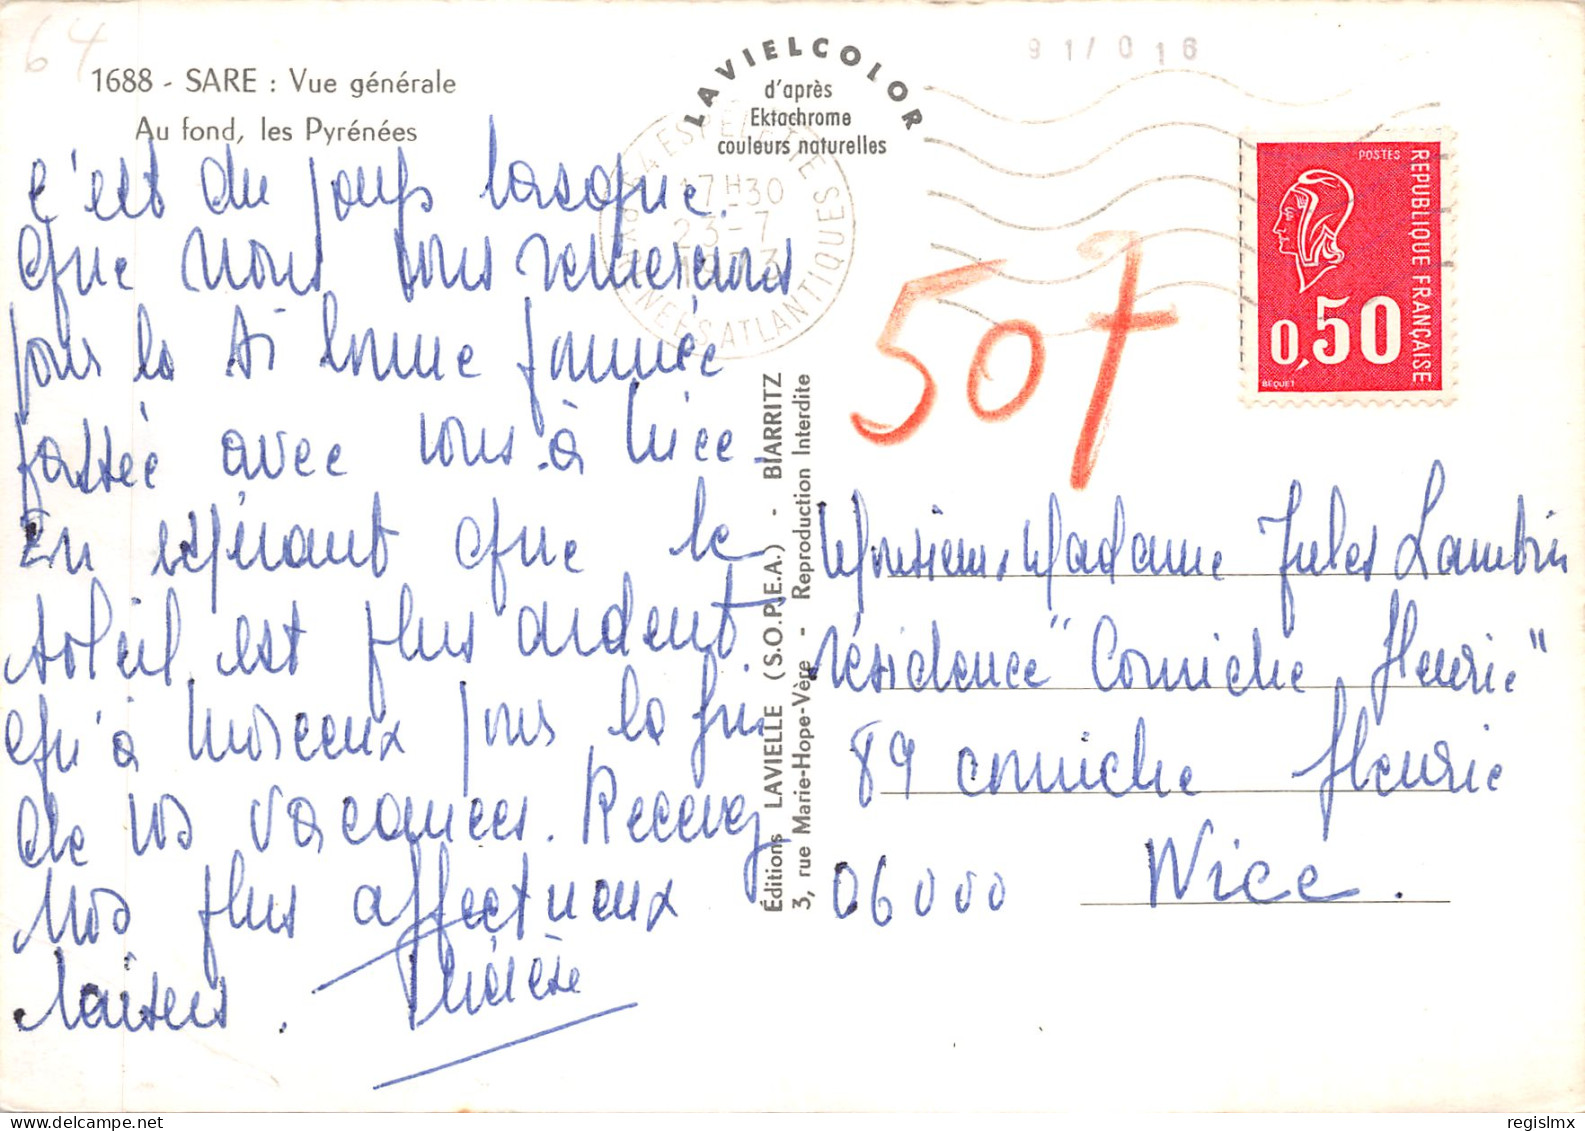 64
1688 - SARE : Vue générale
Au fond, les Pyrénées
c'est du pays basque.
que nous vous remercions
pour la si bonne journée
passée avec vous à Nice.
En espérant que le
soleil est plus ardent.
qu'à Morceaux pour la fin
de vos vacances. Recevez
nos plus affectueux
baisers. Thérèse
LAVIELCOLOR
d'après
Ektachrome
couleurs naturelles
64 ESPELETTE
17H30
23-7
PYRENEES ATLANTIQUES
91/016
POSTES
REPUBLIQUE FRANÇAISE
0,50
BEQUET
50f
Éditions LAVIELLE (S.O.P.E.A.) - BIARRITZ
3, rue Marie-Hope-Vère - Reproduction Interdite
Monsieur, Madame Jules Lambin
résidence "Corniche fleurie"
89 corniche fleurie
06000 Nice.
regislmx